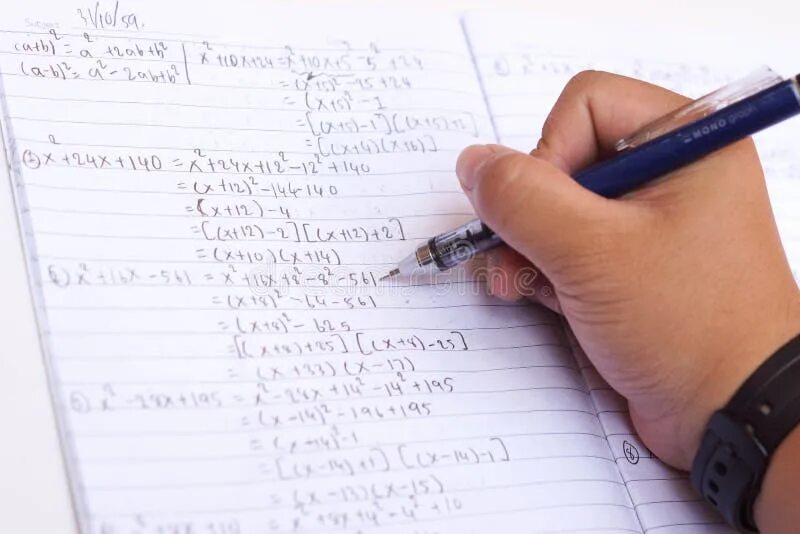 31/10/59.
(a+b)² = a² + 2ab + b²
(a-b)² = a² - 2ab + b²
x² + 10x + 24 = x² + 10x + 5² - 5² + 24
= (x+5)² - 25 + 24
= (x+5)² - 1
= [(x+5) - 1] [(x+5) + 1]
= (x+4)(x+6)]
x² + 24x + 140 = x² + 24x + 12² - 12² + 140
= (x+12)² - 144 - 140
= (x+12) - 4
= [(x+12) - 2] [(x+12) + 2]
= (x+10)(x+14)
x² + 16x - 561 = x² + 16x + 8² - 8² - 561
= (x+8)² - 64 - 561
= (x+8)² - 625
= [(x+8) + 25] [(x+8) - 25]
= (x+33)(x-17)
x² - 28x + 195 = x² - 28x + 14² - 14² + 195
= (x-14)² - 196 + 195
= (x+14)² - 1
= [(x-14) + 1] [(x-14) - 1]
= (x-13)(x-15)
= x² + 8x + 4² - 4² + 10
MONO graph
dreamstime